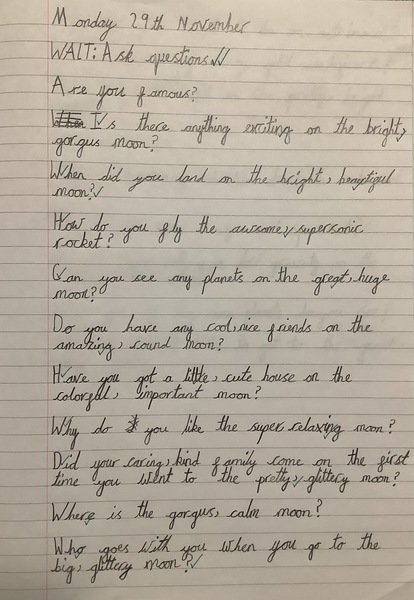 Monday 29th November
WALT: Ask questions
Are you famous?
When Is there anything exciting on the bright,
gorgus moon?
When did you land on the bright, beautiful
moon?
How do you fly the awsome, supersonic
rocket?
Can you see any planets on the great, huge
moon?
Do you have any cool, nice friends on the
amazing, round moon?
Have you got a little, cute house on the
colorful, important moon?
Why do you like the super, relaxing moon?
Did your caring, kind family come on the first
time you went to the pretty, glittery moon?
Where is the gorgus, calm moon?
Who goes with you when you go to the
big, glittery moon?